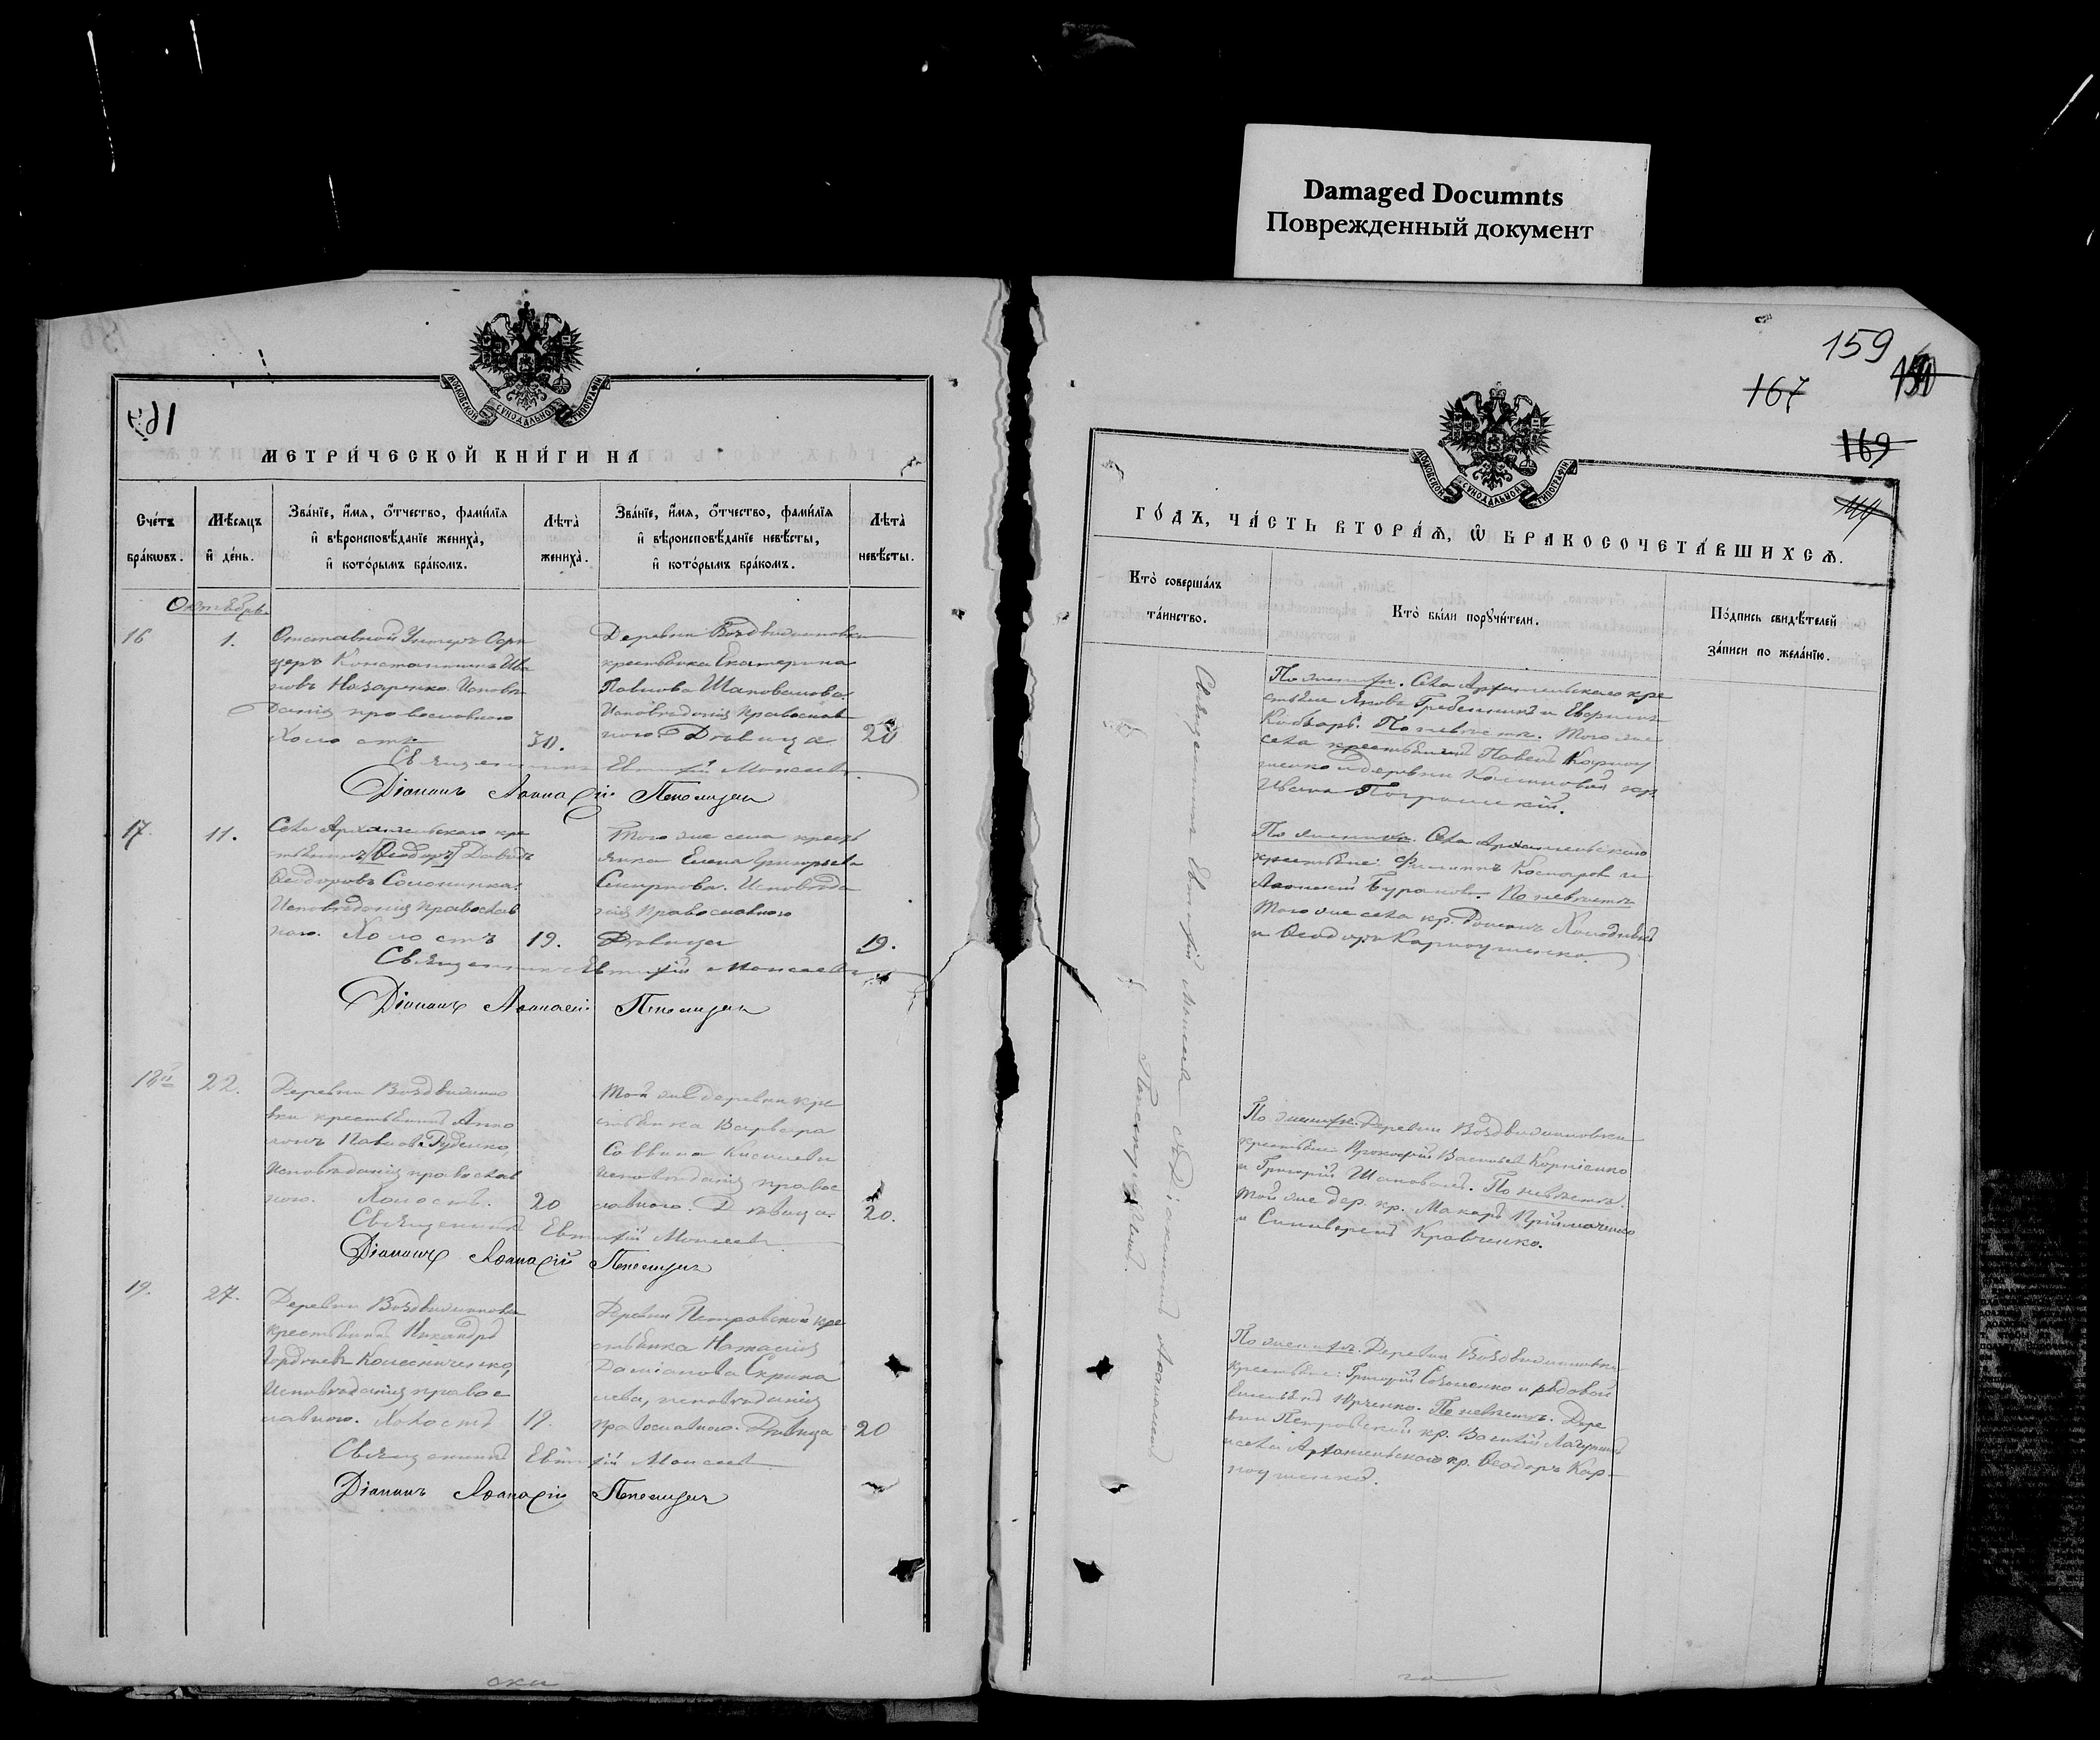 Damaged Documnts
Поврежденный документ
159
167
169
МОСКОВСКОЙ СУНОДАЛЬНОЙ ТИПОГРАФІИ
МЕТРИ́ЧЕСКОЙ КНИ́ГИ НА
Сче́тъ бра́кѡвъ.
Мѣ́сяцъ и҆ де́нь.
Зва́нїе, и҆́мя, ѻ҆́тчество, фами́лїя
и҆ вѣроисповѣ́данїе жениха̀,
и҆ кото́рымъ бра́комъ.
Лѣ́та̀ жениха̀.
Зва́нїе, и҆́мя, ѻ҆́тчество, фами́лїя
и҆ вѣроисповѣ́данїе невѣ́сты,
и҆ кото́рымъ бра́комъ.
Лѣ́та̀ невѣ́сты.
Октябрь
16
1.
Отставной Унтеръ Офи
церъ Константинъ Ива
новъ Назаренко. Исповѣ
данія православнаго
Холостъ
30.
Деревни Воздвижиновки
крестьянка Екатерина
Павлова Шаповалова.
Исповѣданія православ
наго. Дѣвица
20
Священникъ Евтихій Моисеевъ
Діаконъ Аѳанасій
17.
11.
Села Архангельскаго кре
стьянинъ [Ѳеодоръ] Давидъ
Ѳеодоровъ Солонинка.
Исповѣданія православ
наго. Холостъ
19.
Того же села кресть
янка Елена Григорьева
Смирнова. Исповѣда
нія православнаго
Дѣвица
19.
Священникъ Евтихій Моисеевъ
Діаконъ Аѳанасій
18й
22.
Деревни Воздвижино
вки крестьянинъ Аппо
лонъ Павловъ Руденко,
исповѣданія православ
наго. Холостъ.
20
Той же деревни кре
стьянка Варвара
Саввина Киселева
исповѣданія правос
лавнаго. Дѣвица.
20.
Священникъ Евтихій Моисеевъ
Діаконъ Аѳанасій
19.
27.
Деревни Воздвижиновки
крестьянинъ Никандръ
Гордѣевъ Колесниченко,
Исповѣданія правос
лавнаго. Холостъ
19.
Деревни Петровской кре
стьянка Наталія
Даміанова Скрипа
лева, исповѣданія
православнаго. Дѣвица
20
Священникъ Евтихій Моисеевъ
Діаконъ Аѳанасій
МОСКОВСКОЙ СУНОДАЛЬНОЙ ТИПОГРАФІИ
ГО́ДЪ, ЧА́СТЬ ВТОРА́Я, Ѡ҆ БРАКОСОЧЕТА́ВШИХСЯ.
Кто̀ соверша́лъ
та́инство.
Кто̀ бы́ли порꙋчи́тели.
По́дпись свидѣ́телей
за́писи по жела́нїю.
Священникъ Евтихій Моисеевъ съ Діакономъ Аѳанасіемъ
По женихѣ. Села Архангельскаго кре
стьяне Яковъ Гребенникъ и Евфимъ
Кобзарь. По невѣстѣ. Того же
села крестьянинъ Павелъ Карпу
шенко и деревни Калиновой кр.
Иванъ
По женихѣ. Села Архангельскаго
крестьяне: Филиппъ Косаревъ и
Бураковъ. По невѣстѣ
Того же села кр. Романъ
и Ѳеодоръ Карпушенко.
По женихѣ. Деревни Воздвижиновки
крестьяне Прокофій Васильевъ Корніенко
и Григорій Шаповалъ. По невѣстѣ.
той же дер. кр. Макаръ Прійшаченко
и Кравченко.
По женихѣ. Деревни Воздвижиновки
крестьяне: Григорій и рядовой
Емельянъ Юрченко. По невѣстѣ. Дере
вни Петровской кр. Василій
и села Архангельскаго кр. Ѳеодоръ Кар-
поушенко.
ски
го